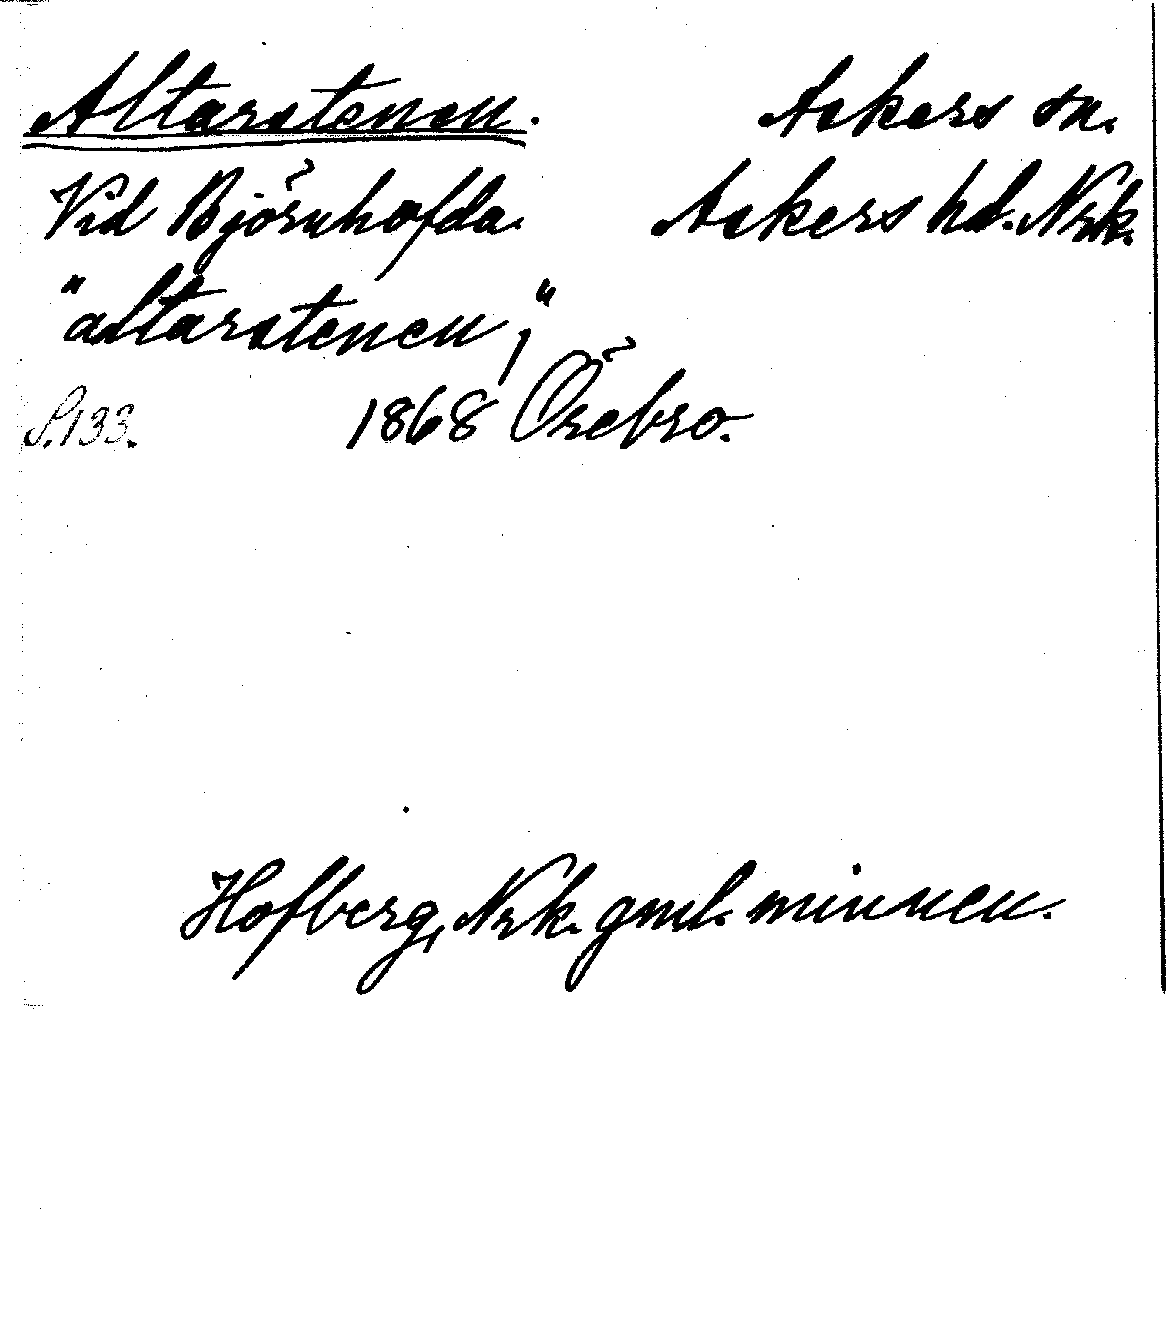 Altarstenen. Askers sn.
Vid Björnhofda. Askers hd. Nrk.
"altarstenen,"
S. 133. 1868 Örebro.
Hofberg, Nrk. gml. minnen.